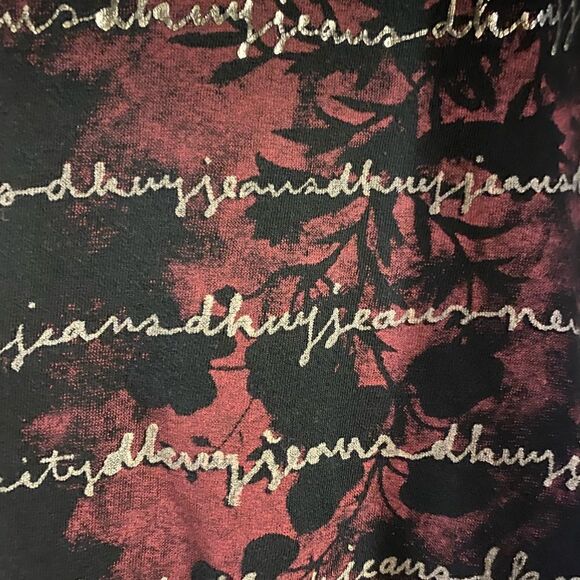 ansdknyjeansdkny
sdknyjeansdknyjeans
jeansdknyjeansne
citydknyjeansdknyj
jeansdkn